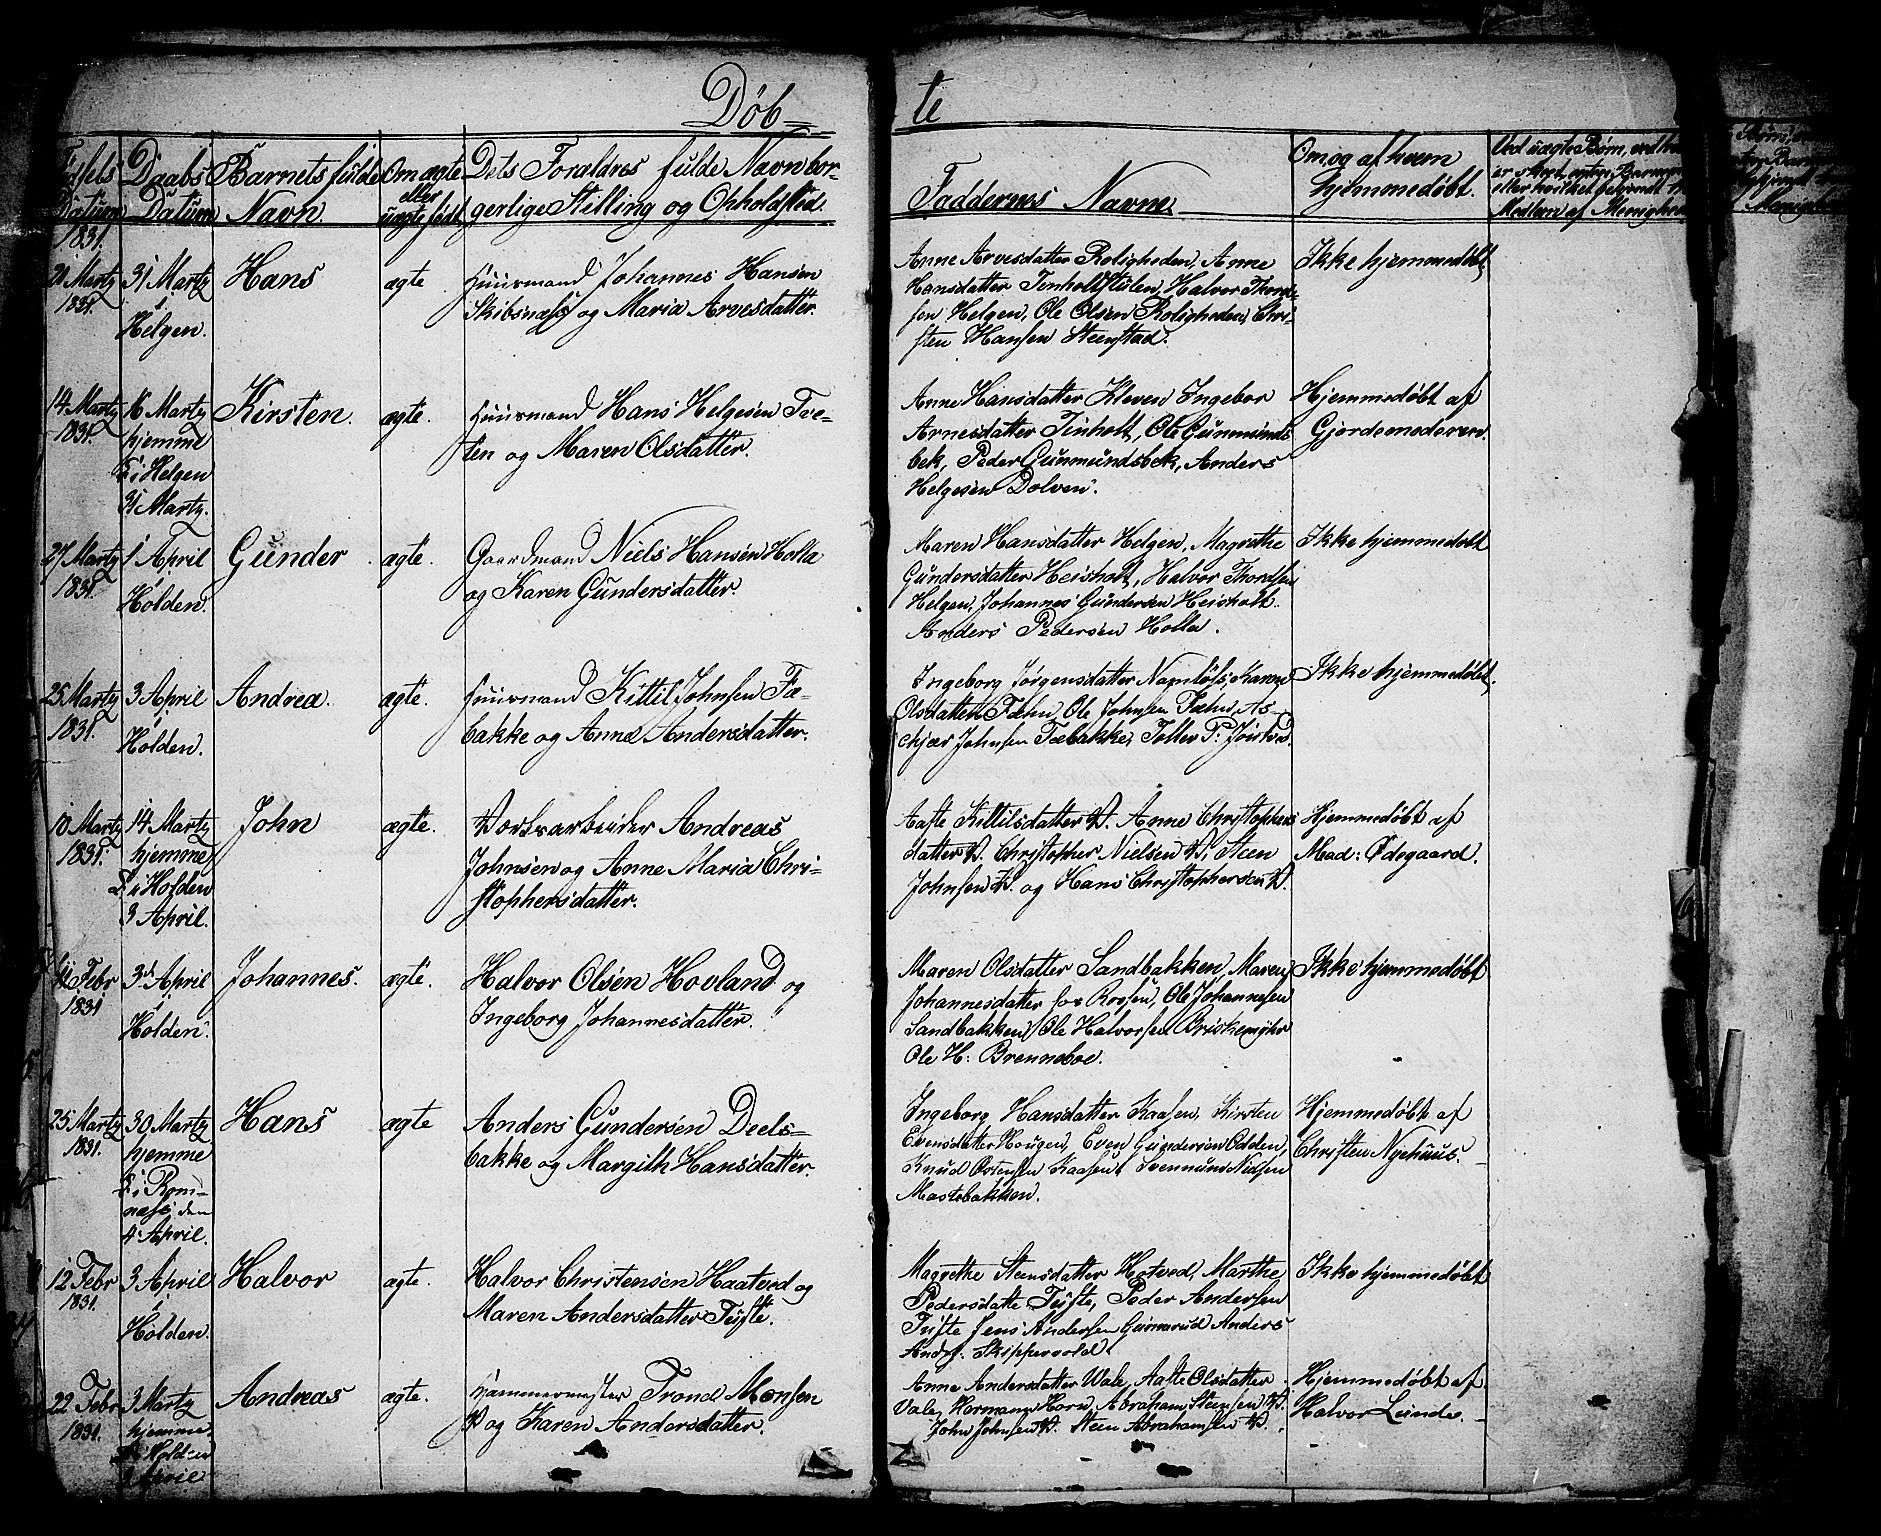 Døb-
te
Fødsels
Datum
Daabs
Datum
Barnets fulde
Navn
Om ægte
eller
uægte født
Dets Forældres fulde Navn bor-
gerlige Stilling og Opholdsted.
Faddernes Navne
Om og af hvem
hjemmedøbt.
1831.
Martz
1831.
31 Martz
i
Helgen.
Hans
ægte
Huusmand Johannes Hansen
Skibsnæss og Maria Arvesdatter.
Anne Arvesdatter Roligheden, Anne
Hansdatter Halvor
sen Helgen, Ole Olsen Roligheden, Chri-
sten Hansen Steenstad.
Ikke hjemmedøbt
14 Martz
1831.
16 Martz
hjemme
& i Helgen
31 Martz.
Kirsten.
ægte.
Huusmand Hans Helgesen Tve-
ten og Maren Olsdatter.
Anne Hansdatter Kleven Ingebor
Arnesdatter Tinholt, Ole Gunmunds
bek, Peder Gunmundsbek, Anders
Helgesen Dolven.
Hjemmedøbt af
Gjordemoderen.
27 Martz
1831.
1 April
i
Holden.
Gunder
ægte.
Gaardmand Niels Hansen Holla
og Karen Gundersdatter.
Maren Hansdatter Helgen, Magrethe
Gundersdatter Heisholt, Halvor Thordsen
Helgen, Johannes Gundersen Heisholt.
Anders Pedersen Holla.
Ikke hjemmedøbt
25 Martz
1831.
3 April
i
Holden.
Andrea.
ægte.
Huusmand Kittil Johnsen Fæ-
bakke og Anne Andersdatter.
Ingeborg Jørgensdatter Karen
Olsdatter Fæhn, Ole Johnsen Fæhn, As-
Johnsen Fæbakke, P:
Ikke hjemmedøbt.
10 Martz
1831.
14 Martz
hjemme
& i Holden
3 April.
John
ægte.
Værksarbeider Andreas
Johnsen og Anne Maria Chri-
stophersdatter.
Aaste Kittilsdatter V. Anne Christophers
datter V. Christopher Nielsen V, Steen
Johnsen V. og Hans Christophersen V.
Hjemmedøbt af
Mad: Ødegaard.
11 Febr
1831
3d April
i
Holden.
Johannes.
ægte.
Halvor Olsen Hovland og
Ingeborg Johannesdatter.
Maren Olsdatter Sandbakken, Maren
Johannesdatter Ole Johannesen
Sandbakken, Ole Halvorsen
Ole H: Brenneboe.
Ikke hjemmedøbt
25 Martz
1831.
30 Martz
hjemme
& i Rom-
næss den
4 April.
Hans
ægte
Anders Gundersen Deels-
bakke og Margith Hansdatter.
Ingeborg Hansdatter Kaasen, Kirsten
Evensdatter Hougen, Even Gundersen Odden,
Knud Kaasen, Nielsen
Mastebakken.
Hjemmedøbt af
Christen Nyehuus.
12 Febr
1831.
3 April
i
Holden.
Halvor
ægte.
Halvor Christensen Haatved og
Maren Andersdatter Tufte.
Magrethe Steensdatter Hotved, Marthe
Pedersdatte Tufte, Peder Andersen
Tufte Jens Andersen Anders
Skippervold.
Ikke hjemmedøbt
22 Febr
1831.
3 Martz
hjemme
& i Holden
April
Andreas
ægte.
Hammermester Trond Monsen
V og Karen Andersdatter.
Anne Andersdatter Vale, Aaste Olsdatter
Vale, Hermann Horn, Abraham Steensen V.
John Johnsen V. Steen Abrahamsen V.
Hjemmedøbt af
Halvor Lunde.